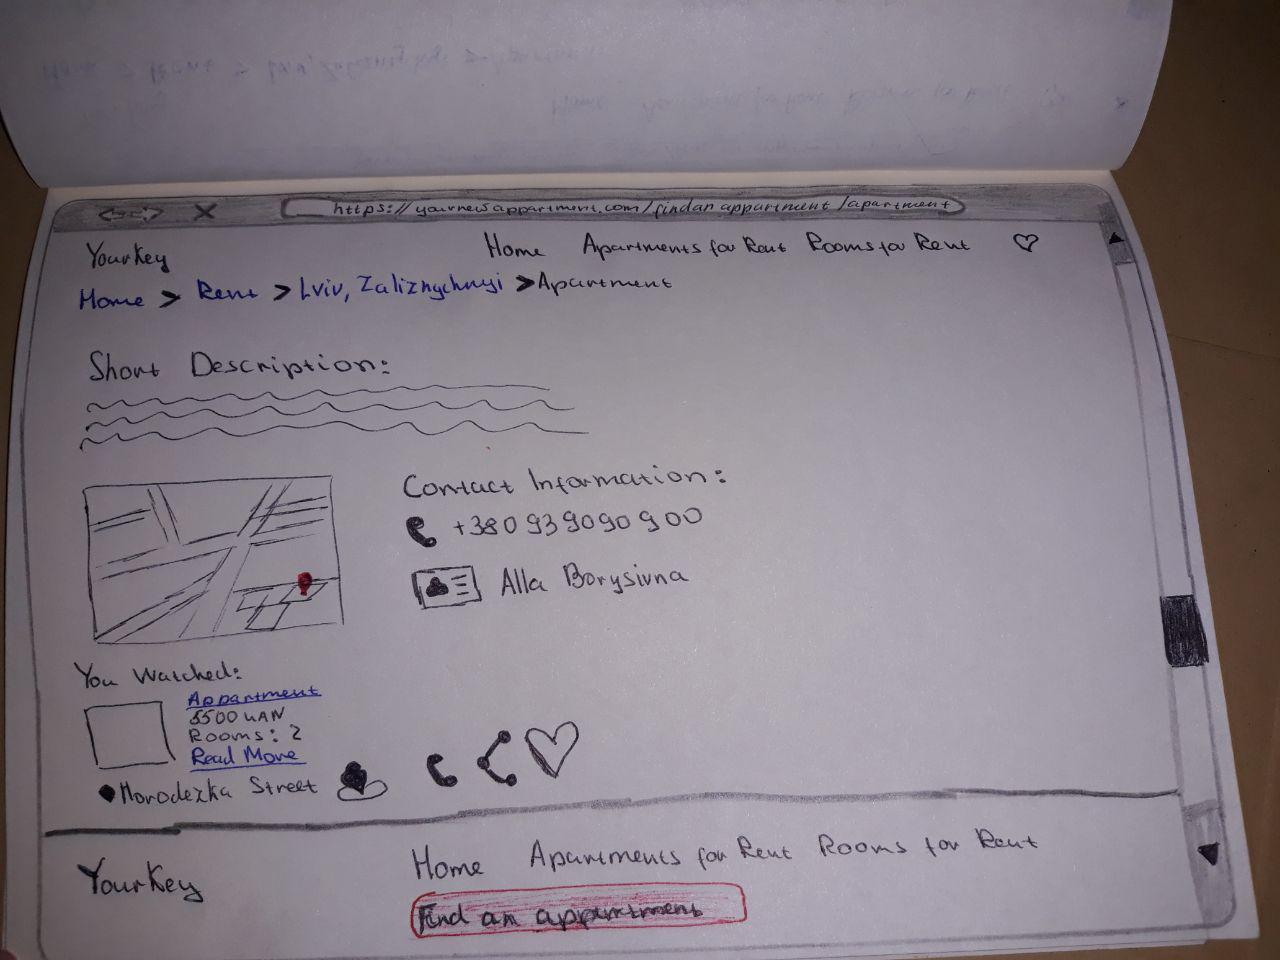 https://yournewsappartment.com/findanappartment/apartment
YourKey Home Apartments for Rent Rooms for Rent
Home > Rent > Lviv, Zaliznychnyi > Apartment
Short Description:
Contact Information:
+380 93 9090 900
Alla Borysivna
You Watched:
Appartment
5500 UAN
Rooms: 2
Read More
Horodezka Street
YourKey Home Apartments for Rent Rooms for Rent
Find an appartment